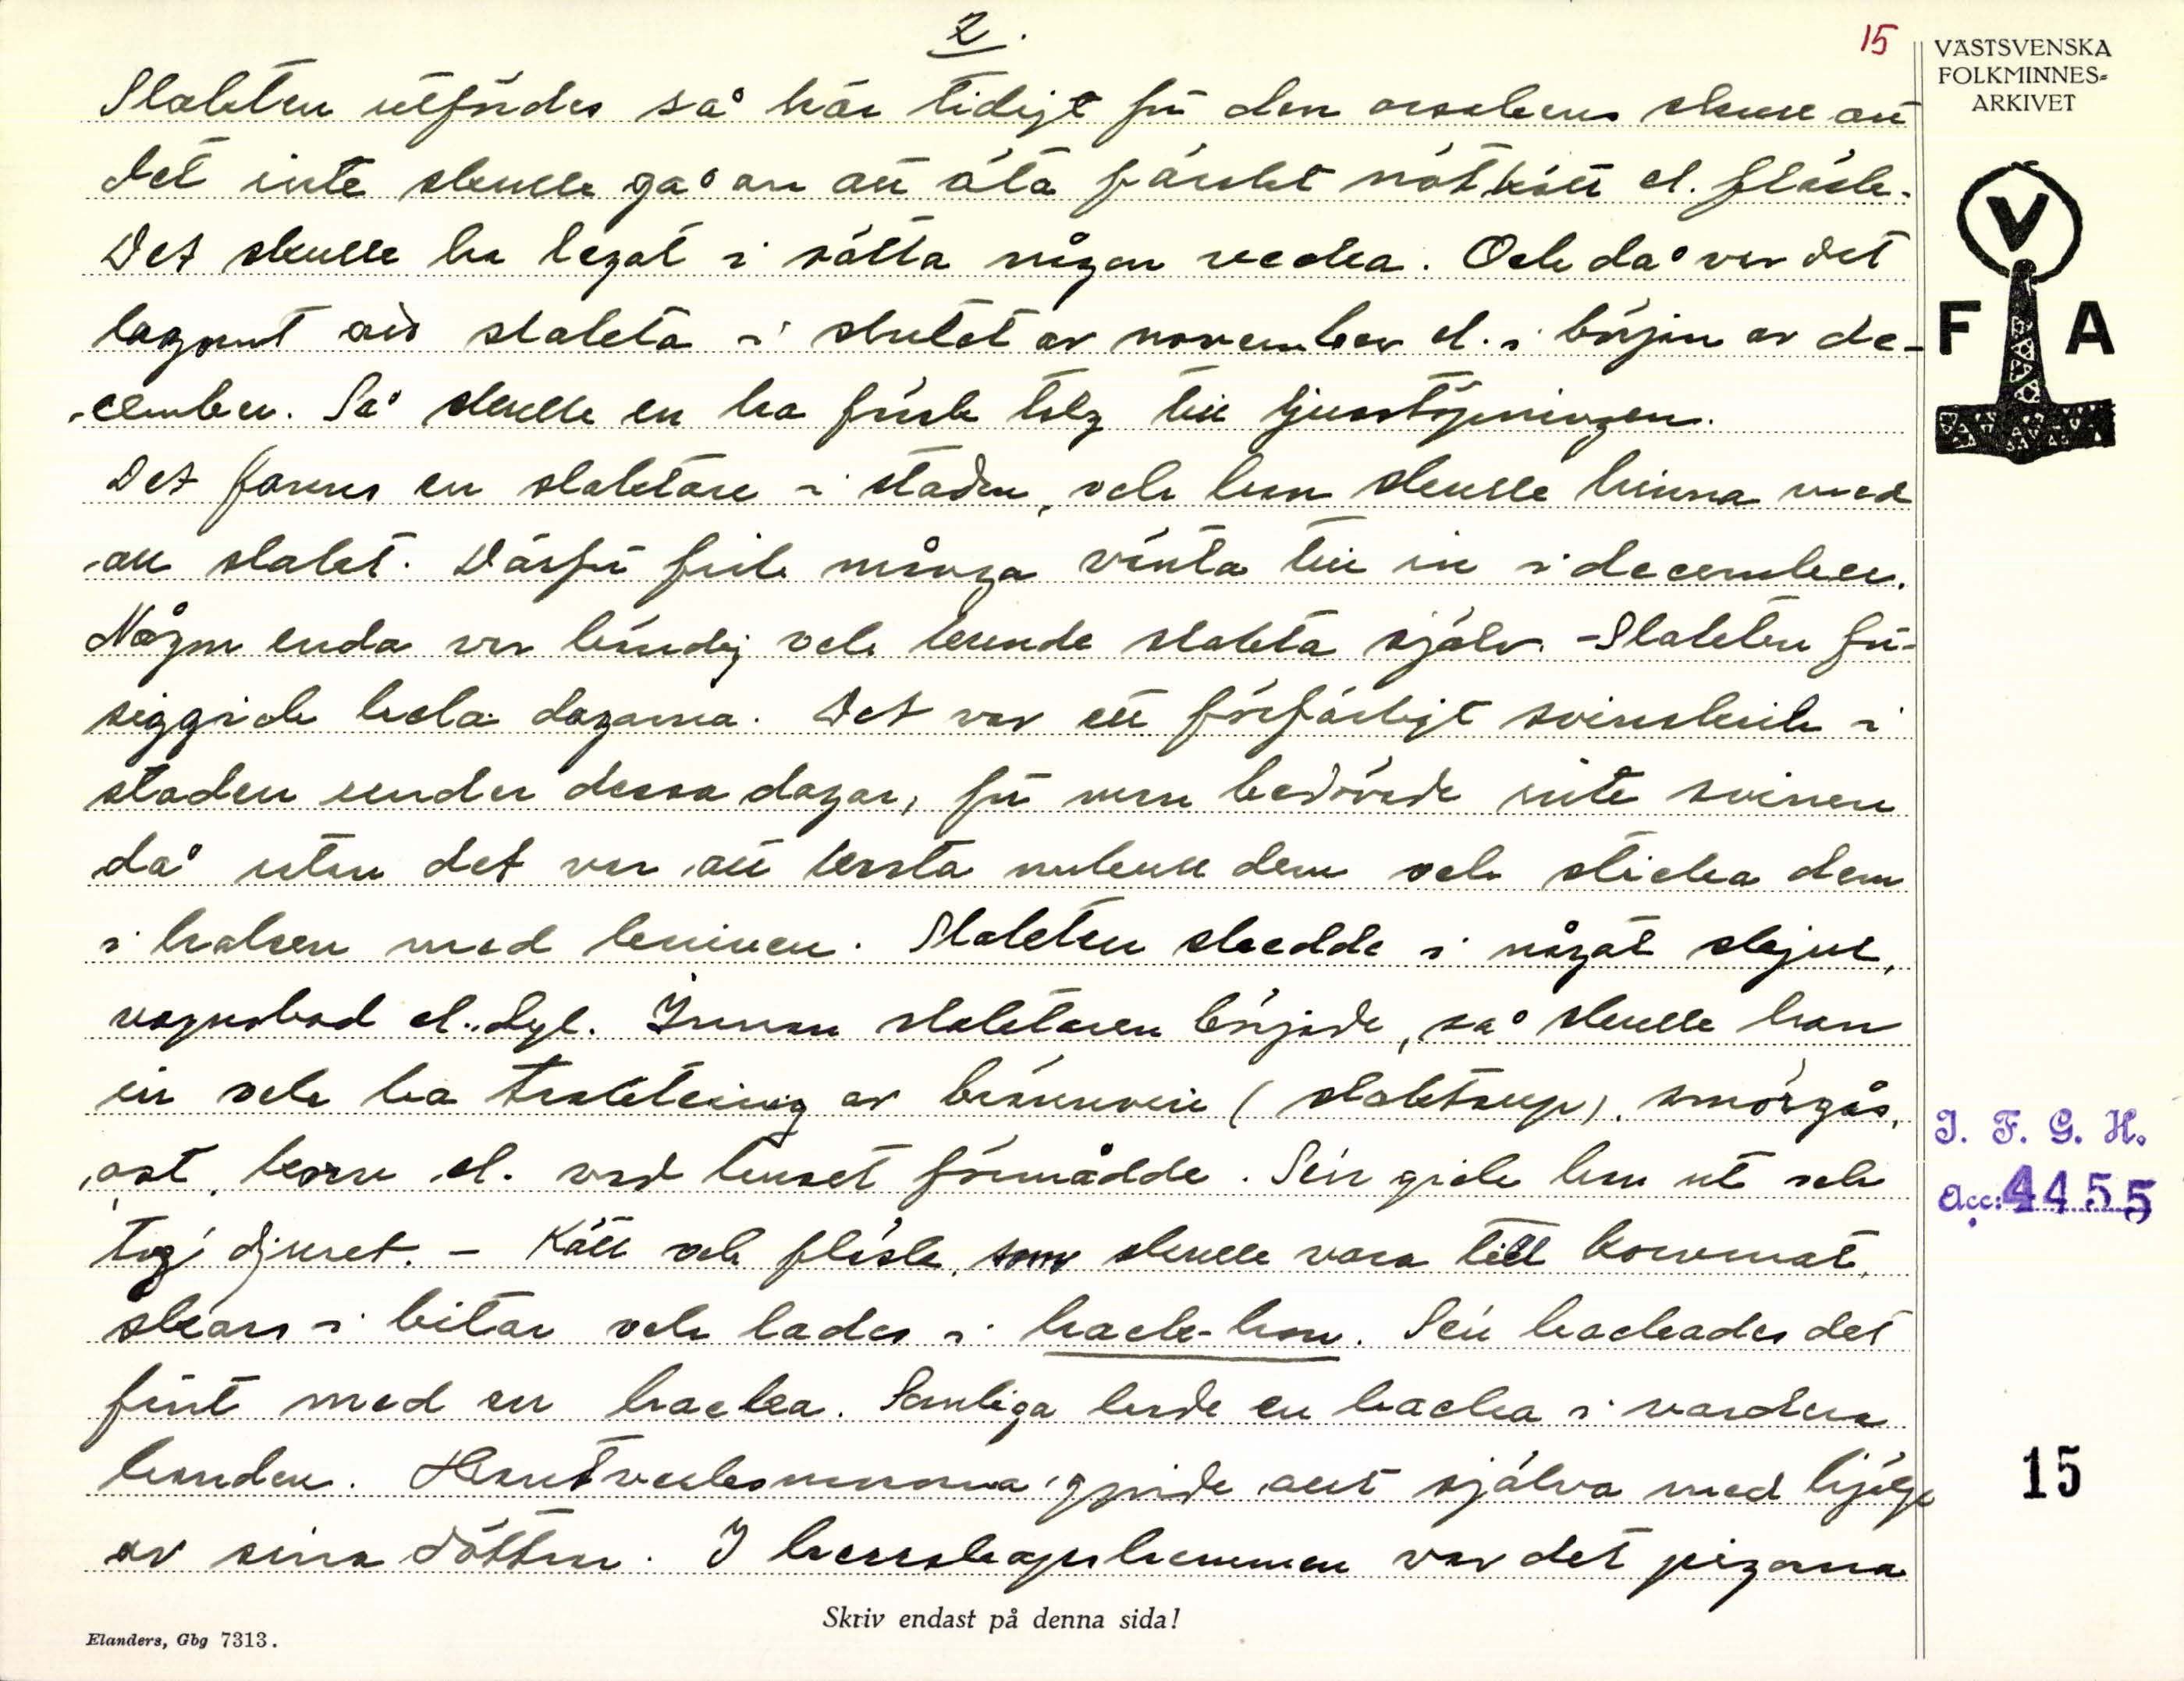 2.
15
VÄSTSVENSKA
FOLKMINNES-
ARKIVET
V
F A
Slakten utfördes så här tidigt för den orsakens skull att
det inte skulle gå an att äta färskt nötkött el. fläsk.
Det skulle ha legat i sälta någon vecka. Och då var det
lagomt att slakta i slutet av november el. i börjin av de-
cember. Så skulle en ha färsk talg till ljusstöpningen.
Det fanns en slaktare i staden, och han skulle hinna med
all slakt. Därför fick många vänta till in i december.
Någon enda var händig och kunde slakta själv. - Slakten för-
siggick hela dagarna. Det var ett förfärligt svinskrik i
staden under dessa dagar, för man bedövade inte svinen
då utan det var att kasta omkull dem och sticka dem
i halsen med kniven. Slakten skedde i något skjul,
vagnsbod el. dyl. Innan slaktaren började, så skulle han
in och ha traktering av brännvin (slaktsup), smörgås,
ost, korv el. vad huset förmådde. Sén gick han ut och
tog djuret. - Kött och fläsk, som skulle vara till korvmat,
skars i bitar och lades i hack-hon. Sén hackades det
fint med en hacka. Somliga hade en hacka i vardera
handen. Hantverksmorona gjorde allt själva med hjälp
av sina döttrar. I herrskapshemmen var det pigorna
I. F. G. H.
Acc: 4455
15
Skriv endast på denna sida!
Elanders, Gbg 7313.